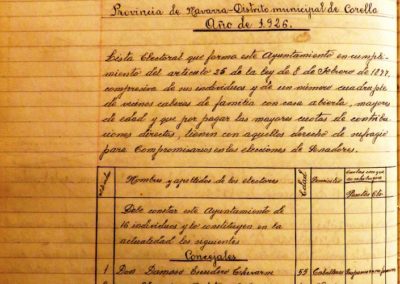 Provincia de Navarra - Distrito municipal de Corella
Año de 1.926.
Lista Electoral que forma este Ayuntamiento en cumpli-
miento del articulo 25 de la ley de 8 de Febrero de 1877,
compresiva de sus individuos y de un número cuadruple
de vecinos cabezas de familia con casa abierta, mayores
de edad y que por pagar las mayores cuotas de contribu-
ciones directas, tienen con aquellos derecho de sufragio
para Compromisarios en las elecciones de Senadores.
Nombres y apellidos de los electores
Edad
Domicilio
Cuotas con que
Pesetas Cts
Debe constar este Ayuntamiento de
16 individuos y lo constituyen en la
actualidad los siguientes
Concejales
1 Don Damaso Escudero 55 Caballeros